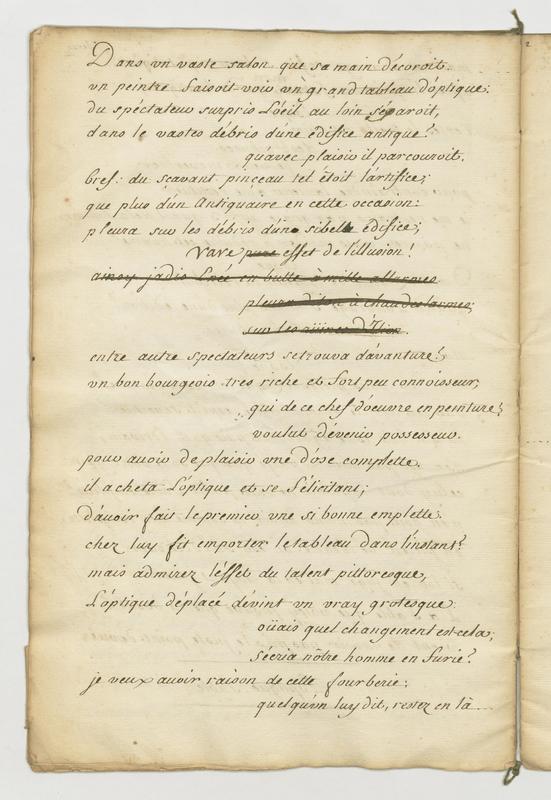 Dans vn vaste salon que sa main décoroit.
vn peintre faisoit voir vn grand tableau d'optique.
du spéctateur surpris L'oeil au loin séparoit,
dans le vastes débris d'une édifice antique.
qu'avec plaisir il parcouroit.
bref: du sçavant pinçeau tel étoit l'artifice;
que plus d'un Antiquaire en cette occasion:
pleura sur les débris d'un si bel édifice;
rare pure éffet de l'illusion!
ainsy jadis Enée en butte à mille allarmes
pleura dit on à chaudes larmes;
sur les ruines d'Ilion.
entre autre spectateurs se trouva d'avanture!
vn bon bourgeois tres riche et fort peu connoisseur;
qui de ce chef d'oeuvre en peinture!
voulut dévenir possesseur.
pour avoir de plaisir vne d'ose complette.
il acheta L'óptique et se félicitant;
d'avoir fait le premier vne si bonne emplette.
chez luy fit emporter le tableau dans l'instant?
mais admirez l'éffet du talent pittoresque,
L'óptique déplacé dévint vn vray grotesque.
oüais quel changement est cela;
s'écria nôtre homme en furie?
je veux avoir raison de celle fourberie.
quelqu'vn luy dit, restez en là